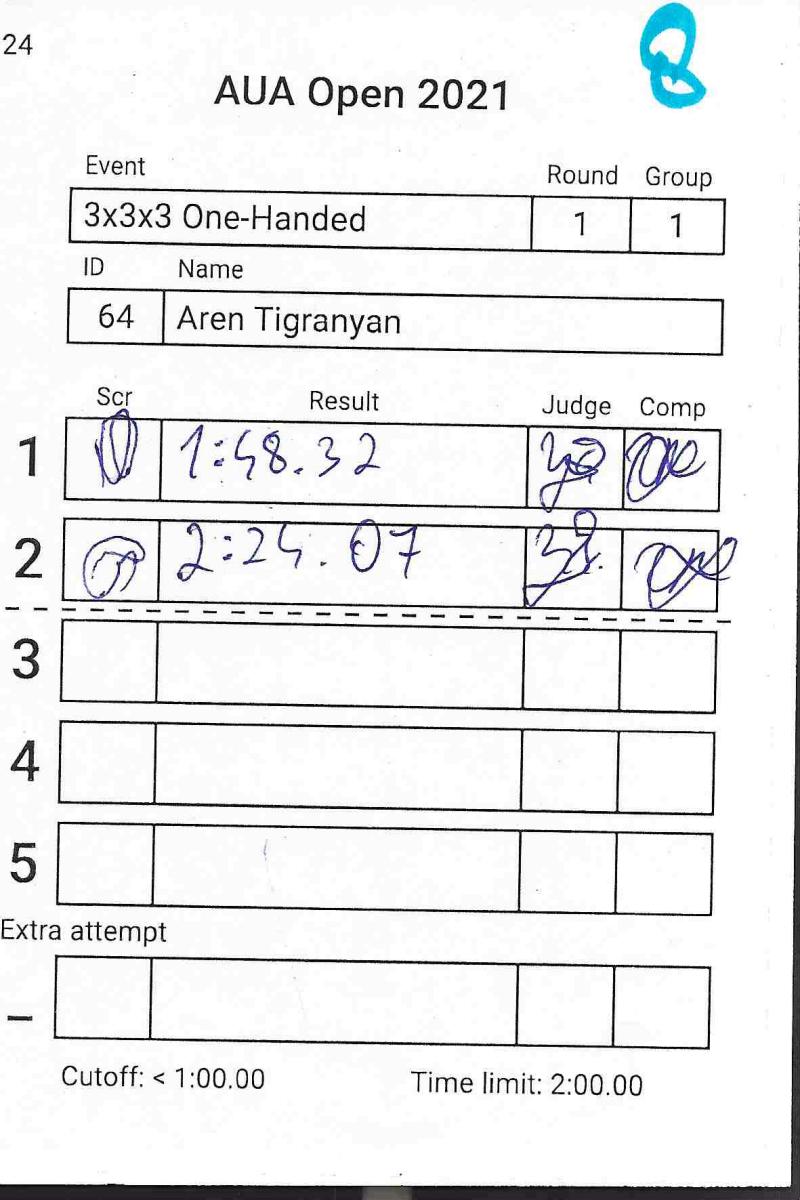 24
AUA Open 2021
Event Round Group
3x3x3 One-Handed 1 1
ID Name
64 Aren Tigranyan
Scr Result Judge Comp
1 1:48.32
2 2:24.07
3
4
5
Extra attempt
_
Cutoff: < 1:00.00 Time limit: 2:00.00